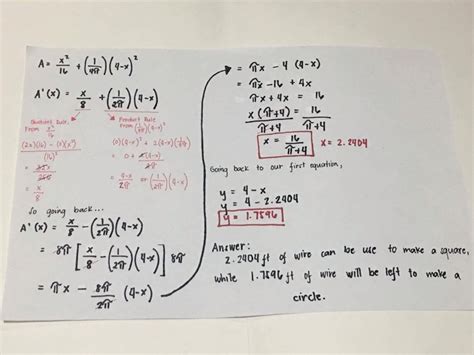 A = x²/16 + (1/4π)(4-x)²
A'(x) = x/8 + (1/2π)(4-x)
Quotient Rule
From x²/16
(2x)(16) - (0)(x²)
(16)²
= x/8
Product Rule
From (1/4π)(4-x)²
= 4-x/2π or (1/2π)(4-x)
So going back...
A'(x) = x/8 - (1/2π)(4-x)
= 8π[x/8 - (1/2π)(4-x)]8π
= πx - 8π/2π (4-x)
= πx - 4 (4-x)
= πx - 16 + 4x
= πx + 4x = 16
x(π+4)/π+4 = 16/π+4
x = 16/π+4 x = 2.2404
Going back to our first equation,
y = 4 - x
y = 4 - 2.2404
y = 1.7596
Answer:
2.2404 ft of wire can be use to make a square,
while 1.7596 ft of wire will be left to make a
circle.